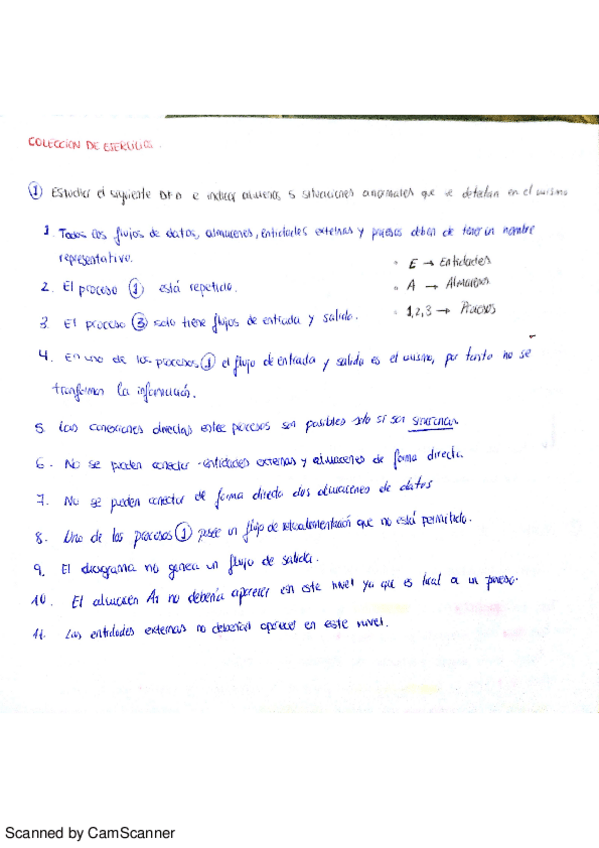 COLECCION DE EJERCICIOS.
① Estudiar el siguiente DFD e indicar al menos 5 situaciones anormales que se detectan en el mismo
1. Todos los flujos de datos, almacenes, entidades externas y procesos deben de tener un nombre
representativo.
• E → Entidades
2. El proceso ① está repetido.
• A → Almacenes
3. El proceso ③ solo tiene flujos de entrada y salida.
• 1,2,3 → Procesos
4. En uno de los procesos ① el flujo de entrada y salida es el mismo, por tanto no se
transforma la información.
5. Las conexiones directas entre procesos son posibles solo si son síncronas.
6. No se pueden conectar entidades externas y almacenes de forma directa.
7. No se pueden conectar de forma directa dos almacenes de datos
8. Uno de los procesos ① posee un flujo de retroalimentación que no está permitido.
9. El diagrama no genera un flujo de salida.
10. El almacén A1 no debería aparecer en este nivel ya que es local a un proceso.
11. Las entidades externas no deberían aparecer en este nivel.
Scanned by CamScanner